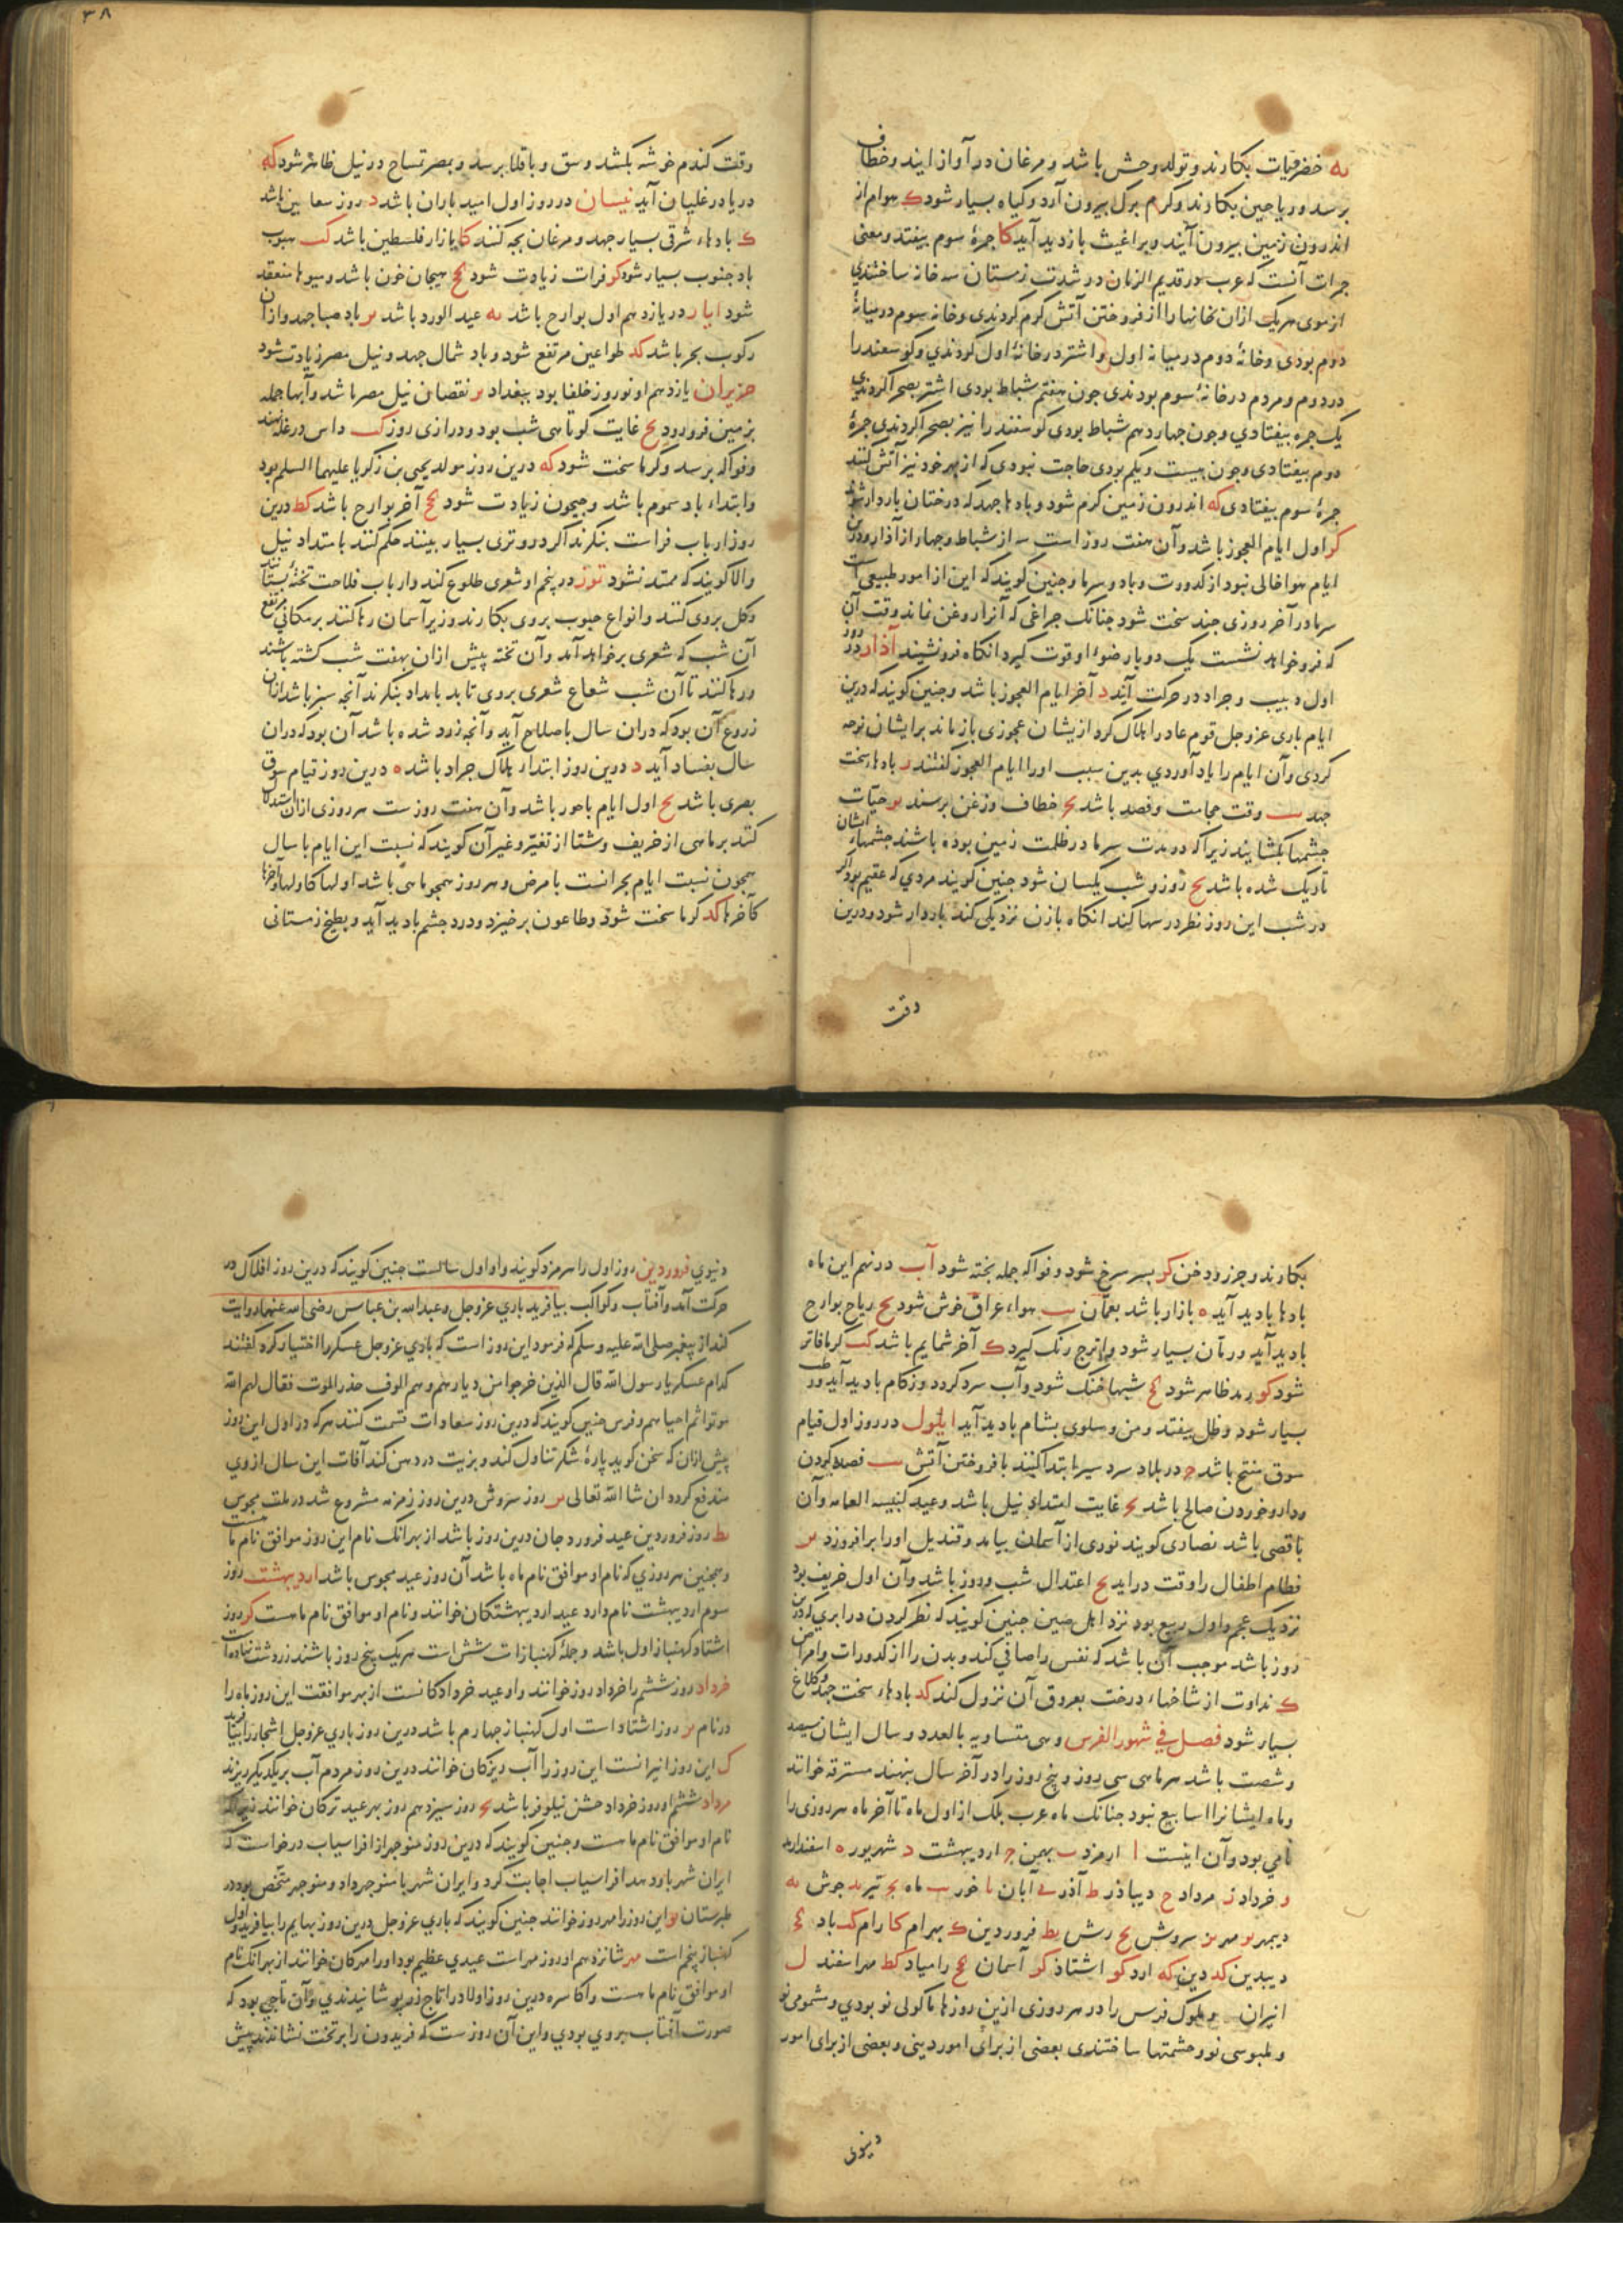 ۳۸
یه خضرتات بکارند و تولد وحش باشد و مرغان در آواز ایند و خطاف
برسد و ریاحین بکارند و کرم برک بیرون آرد و کیاه بسیار شود ک هوام از
اندرون زمین بیرون آیند و براغیث بازدید آید کا جرهٔ سوم بیفتد و معنی
جرات آنست که عرب در قدیم الزمان در شدت زمستان سه خانه ساختندی
از موی هریک ازان خانها را از فروختن آتش کرم کردندی و خانهٔ سوم در میانهٔ
دوم بودی و خانهٔ دوم در میانهٔ اول و اشتر در خانهٔ اول کردندی و کوسفند را
در دوم و مردم در خانهٔ سوم بودندی جون هفتم شباط بودی اشتر بصحرا کردندی
یک جره بیفتادی و جون جهاردهم شباط بودی کوسفند را نیز بصحرا کردندی جرهٔ
دوم بیفتادی و جون بیست و یکم بودی حاجت نبودی که از بهر خود نیز آتش کنند
جرهٔ سوم بیفتادی که اندرون زمین کرم شود و بادها جهد که درختان باردار شوند
کو اول ایام العجوز باشد و آن هفت روز است سه از شباط و جهار از آذار و درین
ایام هوا خالی نبود از کدورت و باد و سرما و جنین کویند که این از امور طبیعی است
سرما در آخر روزی جند سخت شود جنانک جراغی که آنرا روغن نماند وقت آن
که فرو خواهد نشست یک دو بار ضوء او قوت کیرد انکاه فرو نشیند آذار در روز
اول دبیب و جراد در حرکت آیند د آخر ایام العجوز باشد و جنین کویند که درین
ایام باری عز و جل قوم عاد را هلاک کرد ازیشان عجوزی بازماند بر ایشان نوحه
کردی و آن ایام را یاد آوردی بدین سبب او را ایام العجوز کفتند ر بادهاء سخت
جهد یب وقت حجامت و فصد باشد یج خطاف و زغن برسند یو حیات
جشمها بکشایند زیرا که در مدت سرما در ظلمت زمین بوده باشند جشمهاء ایشان
تاریک شده باشد یح روز و شب یکسان شود جنین کویند مردی که عقیم بود اکر
در شب این روز نظر در سها کند انکاه با زن نزدیکی کند باردار شود و درین
وقت
وقت کندم خوشه بکشد و سق و باقلا برسد و بمصر تمساح در نیل ظاهر شود که
دریا در غلیان آید نیسان در روز اول امید باران باشد د روز سعانین باشد
ک بادهاء شرقی بسیار جهد و مرغان بجه کنند کا بازار فلسطین باشد کب هبوب
باد جنوب بسیار شود کو فرات زیادت شود کح هیجان خون باشد و میوها منعقد
شود ایار در یازدهم اول بوارح باشد یه عید الورد باشد یر باد صبا جهد و ازان
رکوب بحر باشد کد طواعین مرتفع شود و باد شمال جهد و نیل مصر زیادت شود
حزیران یازدهم او نوروز خلفا بود ببغداد یر نقصان نیل مصر باشد و آبها جمله
بزمین فرو رود یح غایت کوتاهی شب بود و درازی روز کب داس در غله نهند
و فواکه برسد و کرما سخت شود که درین روز مولد یحیی بن زکریا علیهما السلم بود
و ابتداء باد سموم باشد و جیحون زیادت شود کح آخر بوارح باشد کط درین
روز ارباب فراست بنکرند اکر درو تری بسیار بینند حکم کنند بامتداد نیل
والا کویند که ممتد نشود تموز در پنجم او شعری طلوع کند و ارباب فلاحت تختهٔ بستانند
و کل بروی کنند و انواع حبوب بروی بکارند و زیر آسمان رها کنند بر مکانی مرتفع
آن شب که شعری بر خواهد آمد و آن تخته پیش ازان بهفت شب کشته باشند
و رها کنند تا آن شب شعاع شعری بروی تابد بامداد بنکرند آنجه سبز باشد ازان
زروع آن بود که دران سال باصلاح آید و آنجه زرد شده باشد آن بود که دران
سال بفساد آید د درین روز ابتداء هلاک جراد باشد ه درین روز قیام سوق
بصری باشد یح اول ایام باحور باشد و آن هفت روزست هر روزی ازان استدلال
کنند بر ماهی از خریف و شتا از تغیر و غیر آن کویند که نسبت این ایام با سال
همجون نسبت ایام بحرانست با مرض و هر روز همجو ماهی باشد اولها کاولها و آخرها
کآخرها کد کرما سخت شود و طاعون برخیزد و درد جشم بادید آید و بطیخ زمستانی
بکارند و جزر و دخن کو بسر سرخ شود و فواکه جمله بخته شود آب در نهم این ماه
بادها بادید آید ه بازار باشد بعمان یب هواء عراق خوش شود یح ریاح بوارح
بادید آید و رمان بسیار شود و اترج رنک کیرد ک آخر شمایم باشد کب کرما فاتر
شود کو مد ظاهر شود کح شبها خنک شود و آب سرد کردد و زکام بادید آید و رطب
بسیار شود و طل بیفتد و من و سلوی بشام بادید آید ایلول در روز اول قیام
سوق منبج باشد ج در بلاد سردسیر ابتدا کنند بافروختن آتش یب فصد کردن
و دارو خوردن صالح باشد یج غایت امتداد نیل باشد و عید کنیسة القمامه و آن
باقصی باشد نصاری کویند نوری از آسمان بیاید و قندیل او را برافروزد یر
فطام اطفال را وقت دراید یح اعتدال شب و روز باشد و آن اول خریف بود
نزدیک عجم و اول ربیع بود نزد اهل صین جنین کویند که نظر کردن در ابری که درین
روز باشد موجب آن باشد که نفس را صافی کند و بدن را از کدورات و امراض
ک نداوت از شاخهاء درخت بعروق آن نزول کند کد بادهاء سخت جهد و کلاغ
بسیار شود فصل فی شهور الفرس و هی متساویه بالعدد و سال ایشان سیصد
و شصت باشد هر ماهی سی روز و پنج روز را در آخر سال بنهند مسترقه خوانند
و ماه ایشانرا اسابیع نبود جنانک ماه عرب بلک از اول ماه تا آخر ماه هر روزی را
نامی بود و آن اینست ا ارمزد ب بهمن ج اردیبهشت د شهریور ه اسفندارمد
و خرداد ز مرداد ح دیباذر ط آذر ی آبان یا خور یب ماه یج تیر ید جوش یه
دیبمهر یو مهر یر سروش یح رش یط فروردین ک بهرام کا رام کب باد کج
دیبدین کد دین که ارد کو اشتاذ کر آسمان کح رامیاد کط مهراسفند ل
انیران و ملوک فرس را در هر روزی ازین روزها ماکولی نو بودی و مشمومی نو
و ملبوسی نو و حشمتها ساختندی بعضی از برای امور دینی و بعضی از برای امور
دنیوی
دنیوی فروردین روز اول را هرمزد کویند و او اول سالست جنین کویند که درین روز افلاک در
حرکت آمد و آفتاب و کواکب بیافرید باری عز و جل و عبدالله بن عباس رضی الله عنهما روایت
کند از پیغمبر صلی الله علیه و سلم که فرمود این روز است که باری عز و جل عسکر را اختیار کرد کفتند
کدام عسکر یا رسول الله قال الذین خرجوا من دیارهم و هم الوف حذر الموت فقال لهم الله
موتوا ثم احیاهم و فرس جنین کویند که درین روز سعادات قسمت کنند هرکه در اول این روز
پیش ازان که سخن کوید پارهٔ شکر تناول کند و بزیت در دهن کند آفات این سال از وی
مندفع کردد ان شا الله تعالی یر روز سروش درین روز زمزمه مشروع شد در ملت مجوس
یط روز فروردین عید فروردجان درین روز باشد از بهر انک نام این روز موافق نام ماهست
و همجنین هر روزی که نام او موافق نام ماه باشد آن روز عید مجوس باشد اردیبهشت روز
سوم اردیبهشت نام دارد عید اردیبهشتکان خوانند و نام او موافق نام ماهست کو روز
اشتاد کهنبار اول باشد و جملهٔ کهنبارات شش است هریک پنج روز باشند زردشت نهاده است
خرداد روز ششم را خرداد روز خوانند و او عید خردادکانست از بهر موافقت این روز ماه را
در نام یر روز اشتاد است اول کهنبار جهارم باشد درین روز باری عز و جل اشجار را بیافرید
ل این روز انیرانست این روز را آب ریزکان خوانند درین روز مردم آب بر یکدیکر ریزند
مرداد ششم او روز خرداد جشن نیلوفر باشد یج روز سیزدهم روز بهر عید ترکان خوانند زیرا که
نام او موافق نام ماهست و جنین کویند که درین روز منوجهر از افراسیاب درخواست که
ایران شهر باو دهد افراسیاب اجابت کرد و ایران شهر با منوجهر داد و منوجهر متحصن بود در
طبرستان یو این روز را مهر روز خوانند جنین کویند که باری عز و جل درین روز بهایم را بیافرید و اول
کهنبار پنجم است مهر شانزدهم او روز مهر است عیدی عظیم بود او را مهرکان خوانند از بهر انک نام
او موافق نام ماهست و اکاسره درین روز اولاد را تاج زر پوشانیدندی و آن تاجی بود که
صورت آفتاب بروی بودی و این آن روزست که فریدون را بر تخت نشاندند پیش